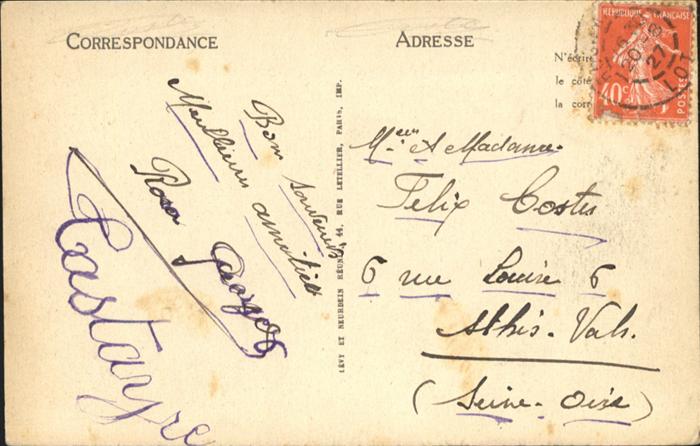 CORRESPONDANCE
Bon souvenir
Meilleures amitiés
Rosa Georges
Castayre
LÉVY ET NEURDEIN RÉUNIS, 44, RUE LETELLIER, PARIS, IMP.
ADRESSE
N'écrire
le côté
la corr
RÉPUBLIQUE FRANÇAISE
40c
POSTES
20
27
LOT
Mr et Madame
Felix Costes
6 rue Louise 6
Athis-Vals.
(Seine-Oise)